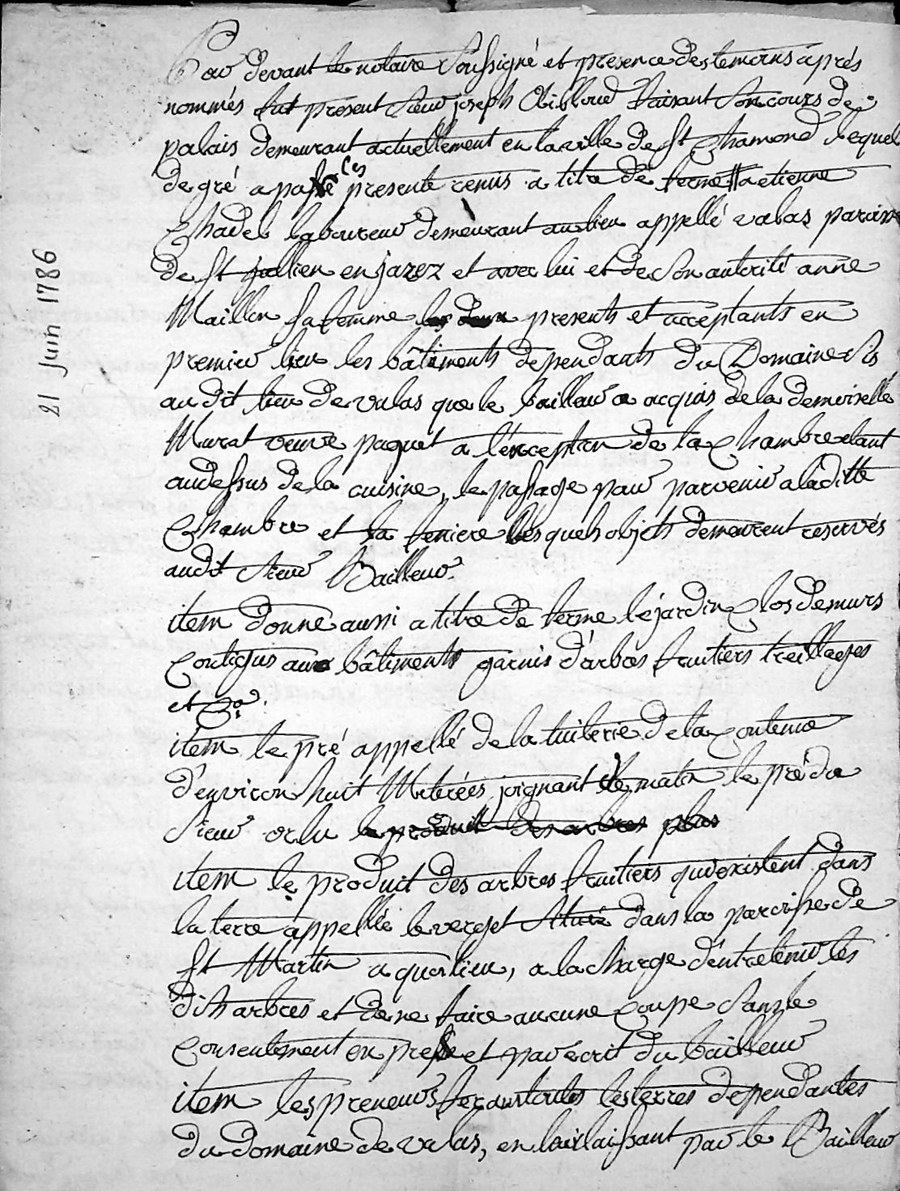 21 Juin 1786
Par devant le notaire Soussigné et presence des temoins aprés
nommés fut present Sieur joseph Faisant Son cours de
palais demeurant actuellement en la ville de St Chamond Lequel
de gré a passé ces presente a titre de ferme a etienne
Chadel laboureur demeurant au lieu appellé valas paroisse
de St jullien en jarez et avec lui et de Son autorité anne
Maillon Sa femme presents et acceptants en
premier lieu les bâtiments dependants du Domaine Sis
au dit lieu de valas que le Bailleur a acquis de la demoiselle
Murat veuve paquet a l'exception de la Chambre etant
audessus de la cuisine, le passage pour parvenir a laditte
Chambre et la feniere lesquels objets demeurent reservés
audit Sieur Bailleur.
item donne aussi a titre de ferme le jardin Clos de murs
Contigus aux bâtiments garnis d'arbres fruitiers treillages
et Ca.
item le pré appellé de la tuilerie de la Contenue
d'environ huit Meterées joignant de matin le pré du
Sieur le produit des arbres plus
item le produit des arbres fruitiers qui existent dans
la terre appellée le verget Situé dans la paroisse de
St Martin a quoalieu, a la charge d'entretenir les
dits arbres et de ne faire aucune Coupe Sans le
Consentement exprès et par ecrit du bailleur
item les preneurs les terres dependantes
du domaine de valas, en laissant par le Bailleur